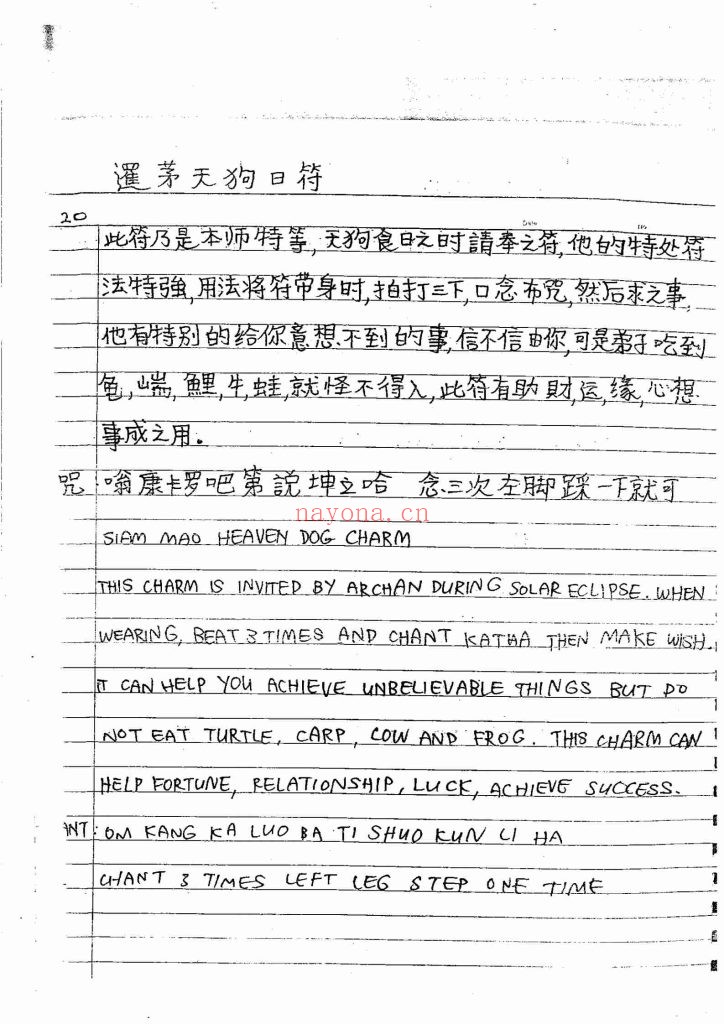 暹茅天狗日符
20
此符乃是本师特等,天狗食日之时請奉之符,他的特处符
法特強,用法将符带身时,拍打三下,口念布咒,然后求之事,
他有特别的给你意想不到的事,信不信由你,可是弟子吃到
龟,喘,鯉,牛,蛙,就怪不得入,此符有助財,运,缘,心想
事成之用.
咒:嗡康卡罗吧第説坤立哈 念三次左脚踩一下就可
nayona.cn
SIAM MAO HEAVEN DOG CHARM
THIS CHARM IS INVITED BY ARCHAN DURING SOLAR ECLIPSE. WHEN
WEARING, BEAT 3 TIMES AND CHANT KATHA THEN MAKE WISH.
IT CAN HELP YOU ACHIEVE UNBELIEVABLE THINGS BUT DO
NOT EAT TURTLE, CARP, COW AND FROG. THIS CHARM CAN
HELP FORTUNE, RELATIONSHIP, LUCK, ACHIEVE SUCCESS.
ANT: OM KANG KA LUO BA TI SHUO KUN LI HA
CHANT 3 TIMES LEFT LEG STEP ONE TIME